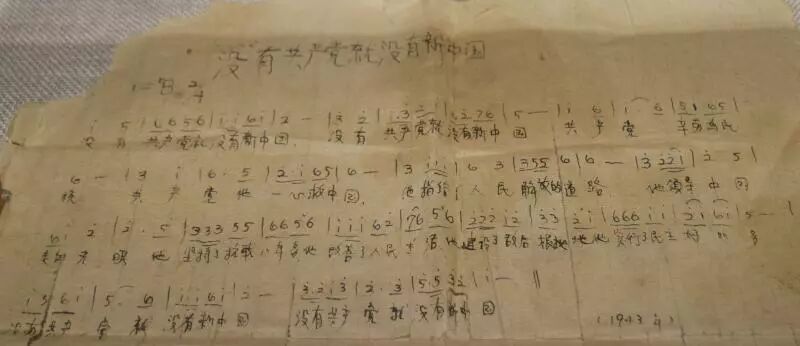 没有共产党就没有新中国
1=B 2/4
i 5 | 6 6 5 6 | i i 6 i | 2 — | 3 2 | i 3 2 i | 2 7 6 | 5 — | i 6 | i · 6 | 5 i 6 5 |
没有共产党就没有新中国, 没有共产党就没有新中国 共产党 辛劳为民
6 — | 3 i | 6 · 5 | 2 · i 6 5 | 6 — | 3 i i | 6 3 | 3 5 5 | 6 6 — | 3 2 2 i | 2 5 |
族 共产党他一心救中国, 他指给了人民解放的道路 他领导中国
6 i 2 | 2 · 5 | 3 3 3 5 5 | 6 6 5 6 | i i i 6 2 | 7 6 5 6 | 2 2 2 i 2 | 3 3 2 i | 6 6 6 i i | 2 i 6 i | 5 — |
走向光明 他坚持了抗战八年多他改善了人民生活他建设了敌后根据地他实行了民主好处多
i 5 6 i | 5 · 6 | i i 6 i | 2 — | 3 · 2 i 3 | 2 · 3 | 5 5 3 2 | i — ‖
没有共产党就没有新中国 没有共产党就没有新中国
(1943年)